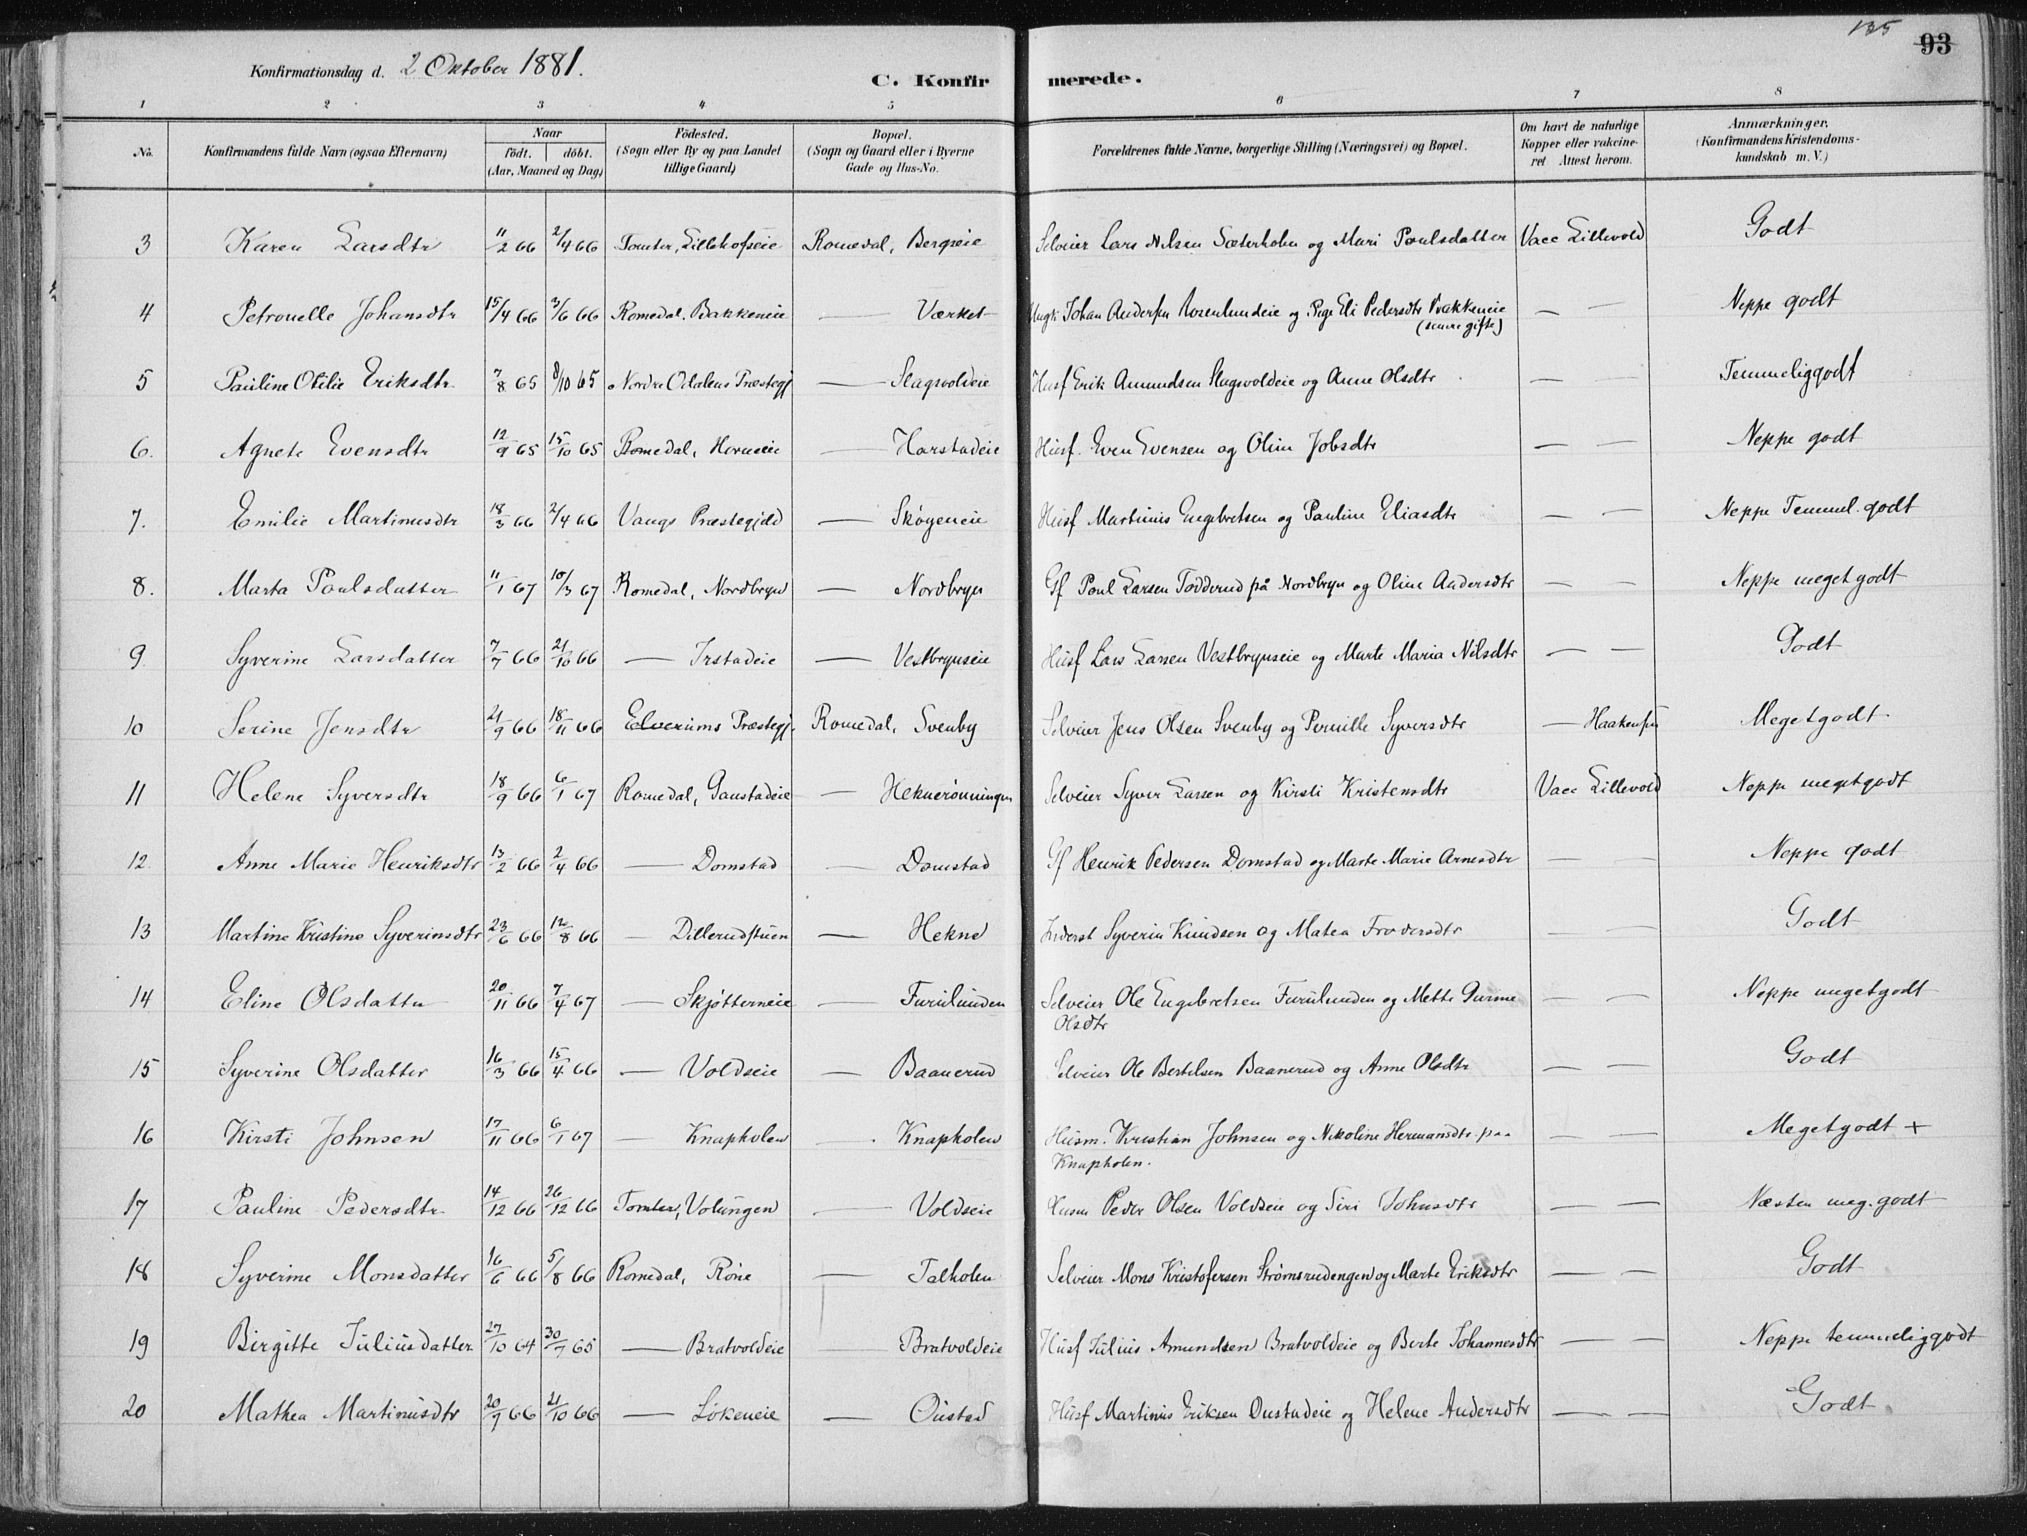 135
93
Konfirmationsdag d. 2 Oktober 1881.
C. Konfirmerede.
1 2 3 4 5 6 7 8
No. Konfirmandens fulde Navn (ogsaa Efternavn) Naar födt. döbt. (Aar, Maaned og Dag) Födested. (Sogn eller By og paa Landet tillige Gaard) Bopæl. (Sogn og Gaard eller i Byerne Gade og Hus-No. Forældrenes fulde Navne, borgerlige Stilling (Næringsvei) og Bopæl. Om havt de naturlige Kopper eller vakcineret Attest herom. Anmærkninger. (Konfirmandens Kristendomskundskab m. V.)
3 Karen Larsdtr 11/2 66 2/4 66 Tomter, Lillehofseie Romedal, Bergseie Selveier Lars Nilsen Sæterholen og Mari Poulsdatter Vacc Lillevold Godt
4 Petronelle Johansdtr 15/4 66 3/6 66 Romedal, Bakkeneie — Værket Ungk Johan Andersen Rosenlundeie og Pige Eli Pedersdtr Bakkeneie — — Neppe godt
(senere gifte)
5 Pauline Otilie Eriksdtr 7/8 65 8/10 65 Nordre Odalens Præstegj — Slagsvoldeie Husf Erik Amundsen Slagsvoldeie og Anne Olsdtr — — Temmeliggodt
6. Agnete Evensdtr 12/9 65 15/10 65 Romedal, Horneeie — Harstadeie Husf. Even Evensen og Oline Jobsdtr — — Neppe godt
7. Emilie Martinusdtr 18/3 66 2/4 66 Vangs Præstegjeld — Skøgeneie Husf Martinus Engebretsen og Pauline Eliasdtr — — Neppe Temmel. godt
8. Marta Poulsdatter 11/1 67 10/3 67 Romedal, Nordbryn — Nordbryn Gf Poul Larsen Todderud på Nordbryn og Oline Andersdtr — — Neppe megetgodt
9. Syverine Larsdatter 7/7 66 21/10 66 — Irstadeie — Vestbrynseie Husf Lars Larsen Vestbrynseie og Marte Maria Nilsdtr — — Godt
10 Serine Jensdtr 21/9 66 18/11 66 Elverums Præstegj. Romedal, Svenby Selveier Jens Olsen Svenby og Pernille Syversdtr — Haakensen Megetgodt.
11 Helene Syversdtr 18/9 66 6/1 67 Romedal, Gaustadeie — Heknerønningen Selveier Syver Larsen og Kirsti Kristensdtr Vacc Lillevold Neppe megetgodt
12. Anne Marie Henriksdtr 13/2 66 2/4 66 — Domstad — Domstad Gf Henrik Pedersen Domstad og Marte Marie Arnesdtr — — Neppe godt
13 Martine Kristine Syverinsdtr 23/6 66 12/8 66 — Dillerudstuen — Hekne Inderst Syverin Knudsen og Matea Frodersdtr — — Godt
14 Eline Olsdatter 20/11 66 7/4 67 — Skjøtterneie — Furulunden Selveier Ole Engebretsen Furulunden og Mette Gurine — — Neppe megetgodt
Olsdtr
15 Syverine Olsdatter 16/3 66 15/4 66 — Voldseie — Baanerud Selveier Ole Bertelsen Baanerud og Anne Olsdtr — — Godt
16 Kirsti Johnsen 17/11 66 6/1 67 — Knapholen — Knapholen Husm. Kristian Johnsen og Nikoline Hermansdtr paa — — Megetgodt +
Knapholen.
17 Pauline Pedersdtr 14/12 66 26/12 66 Tomter, Volungen — Voldseie Husm Peder Olsen Voldseie og Siri Johnsdtr — — Næsten meg. godt
18 Syverine Monsdatter 16/6 66 5/8 66 Romedal, Røne — Talholen Selveier Mons Kristofersen Strømsrudengen og Marte Eriksdtr — — Godt
19 Birgitte Juliusdatter 27/10 64 30/7 65 — Bratvoldeie — Bratvoldeie Husf Julius Amundsen Bratvoldeie og Berte Johannesdtr — — Neppe temmeliggodt
20 Mathea Martinusdtr 20/9 66 21/10 66 — Løkeneie — Oustad Husf Martinus Eriksen Oustadeie og Helene Andersdtr — — Godt